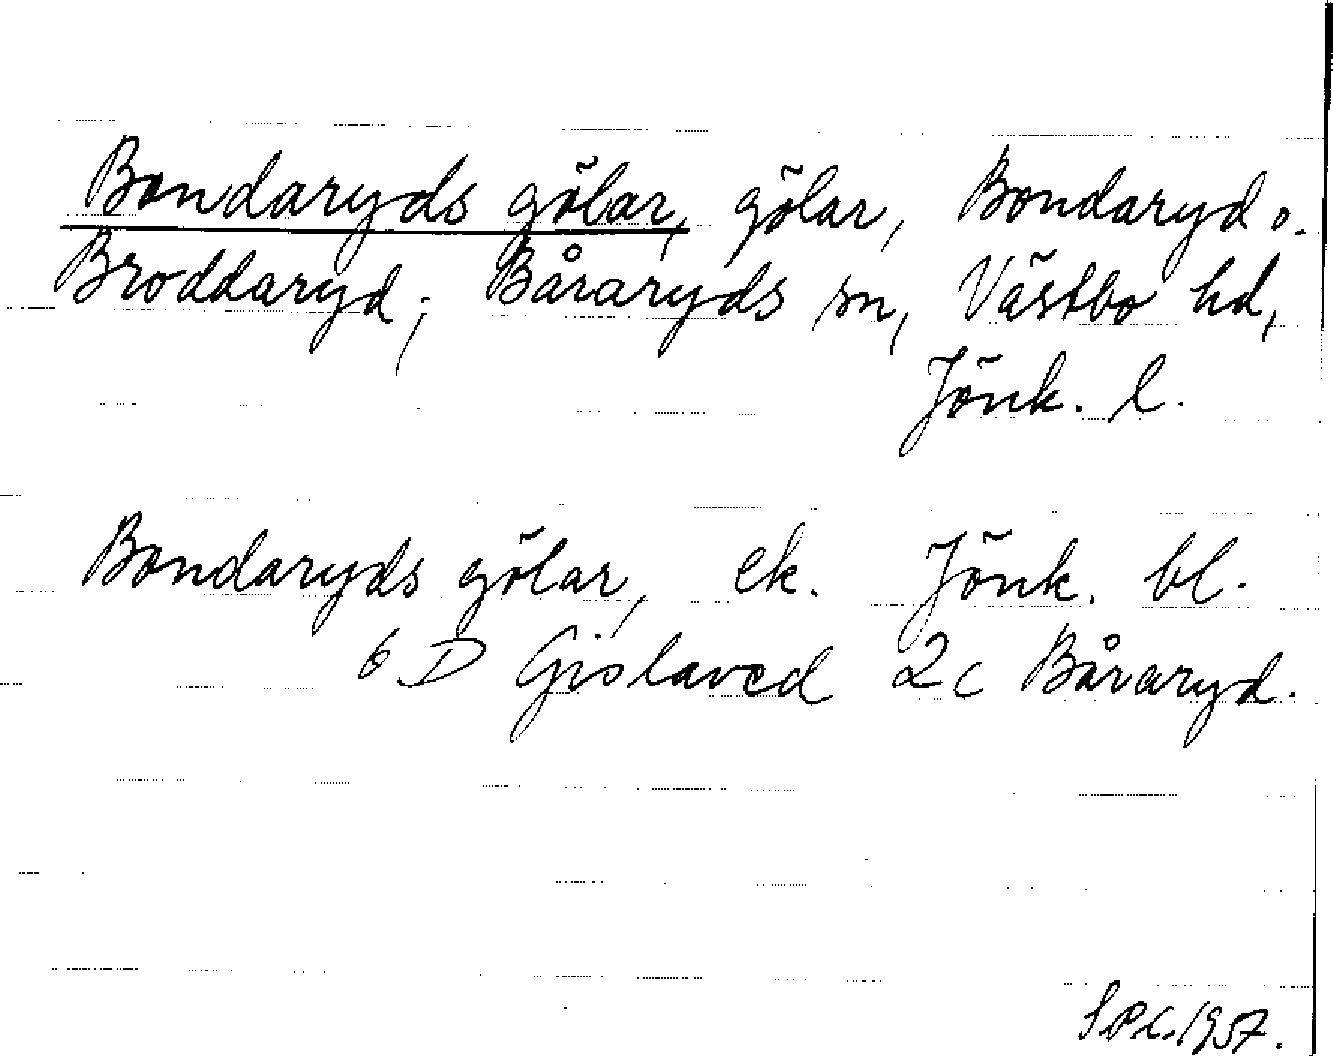 Bondaryds gölar, gölar, Bondaryd o.
Broddaryd; Båraryds sn, Västbo hd,
Jönk. l.
Bondaryds gölar, ek. Jönk. bl.
6 D Gislaved 2c Båraryd.
S.P.C. 1957.